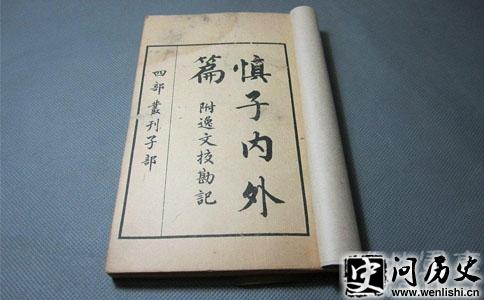 慎子内外
篇
附逸文校勘記
四部叢刊子部
史问历史
www.wenlishi.cn